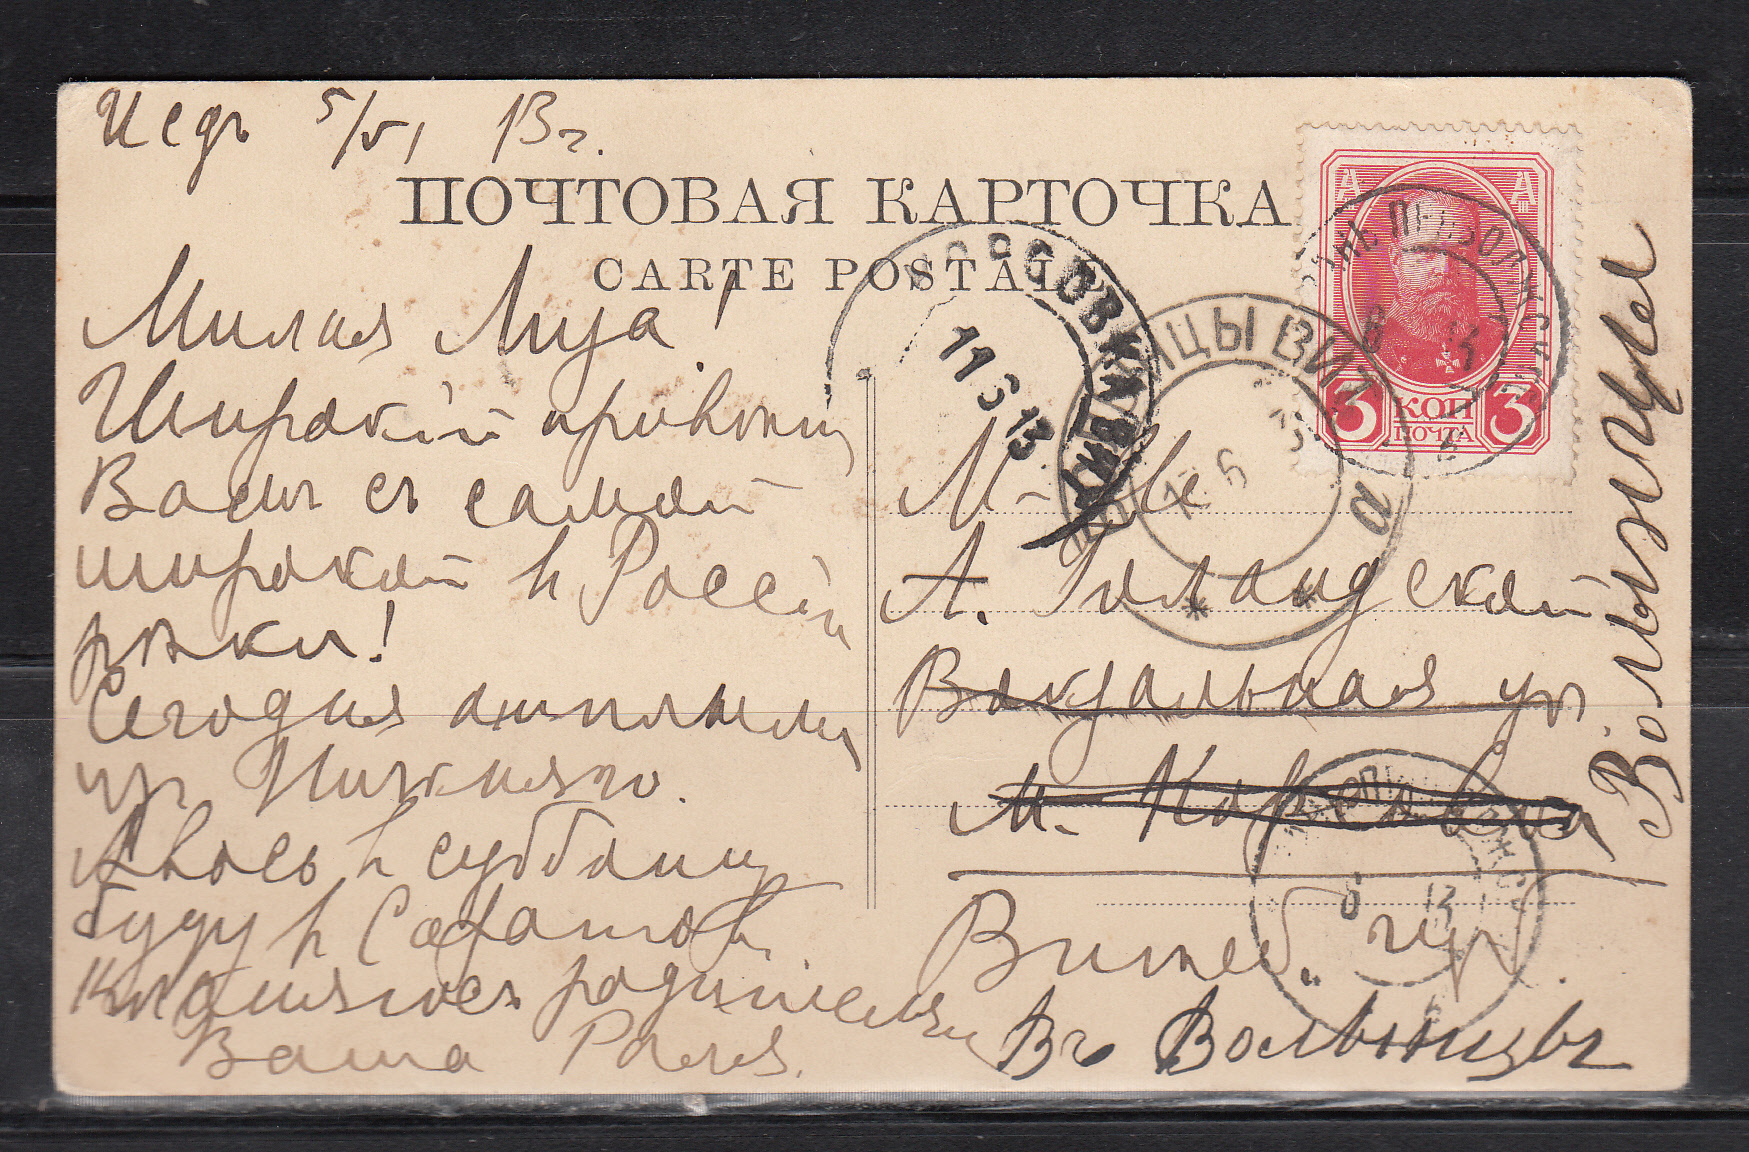 5/VI 13 г.
ПОЧТОВАЯ КАРТОЧКА
CARTE POSTALE
Милая Луза!
Широкій привѣтъ
Вамъ съ самой
широкой в Россіи
рѣки!
Сегодня отплыли
из Нижняго.
Авось в субботу
буду в Саратовѣ.
Кланяюсь родителямъ
Ваша Раля.
А А
III III
3 КОП 3
ПОЧТА
КОРСОВКА ВИТ.
11 6 13
ИЦЫ ВИТ
13
М-lle
А. Голандской
Вокзальная ул
м. Корсовка
Витеб. губ.
Въ Волынцы
Волынцы